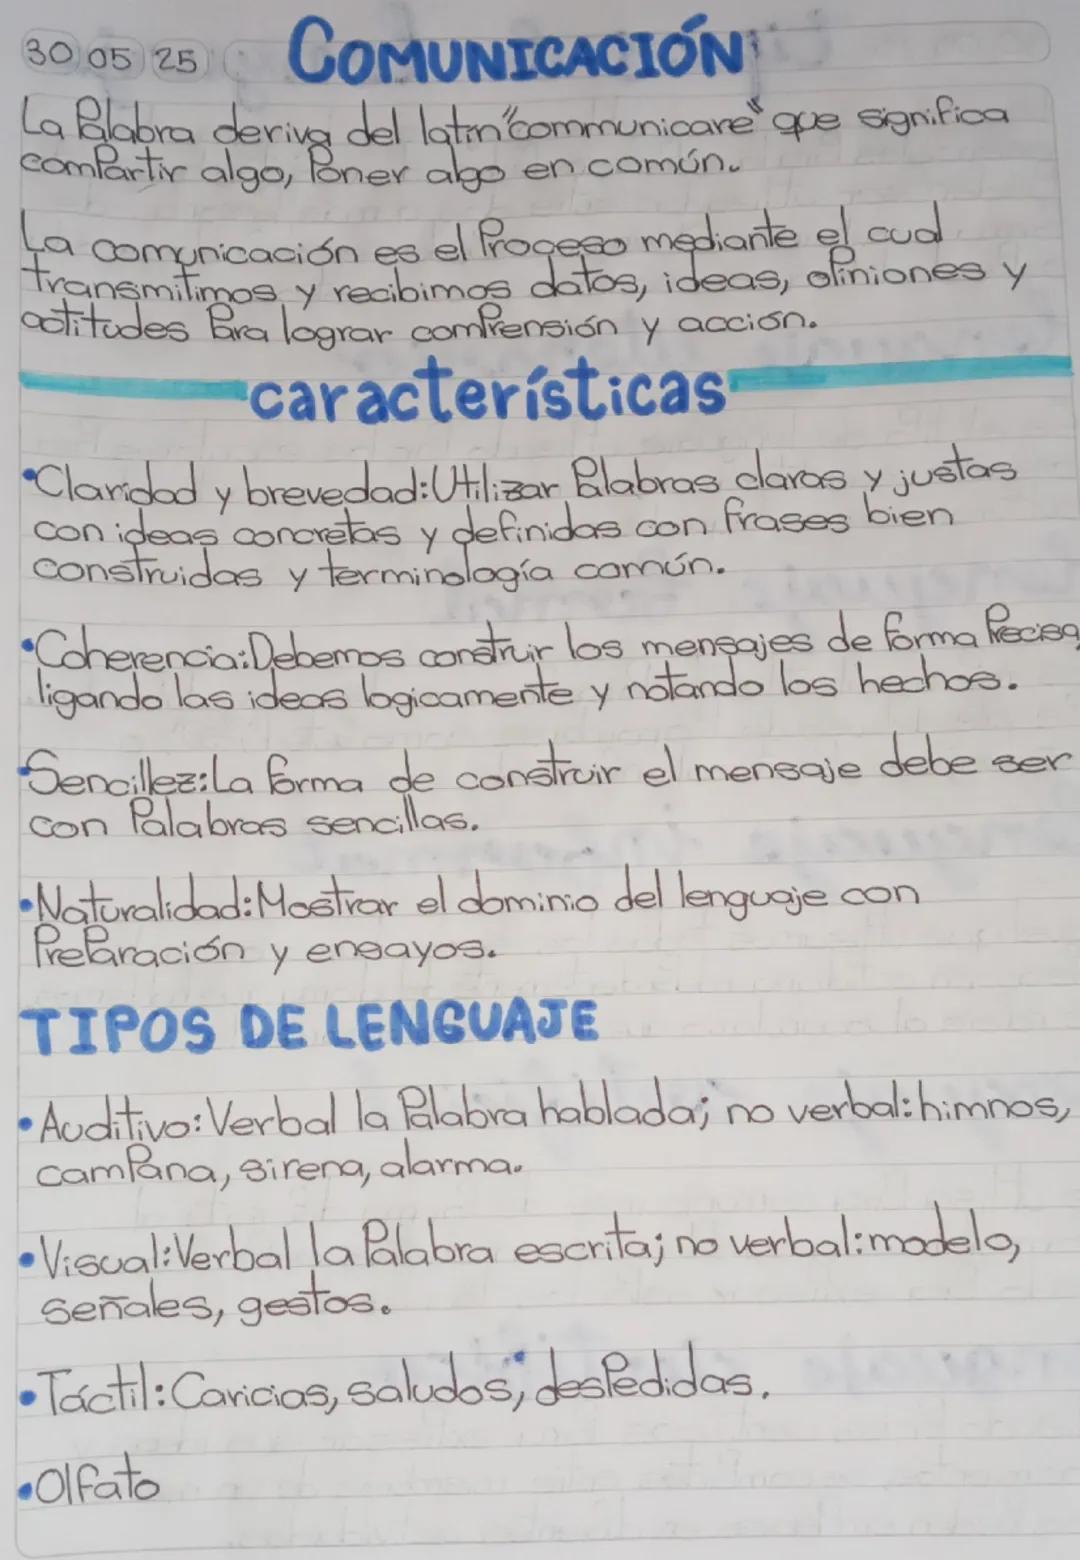 30 05 25 COMUNICACIÓN
La Palabra deriva del latín "communicare" que significa
compartir algo, Poner algo en común.
La comunicación es el Proceso mediante el cual
transmitimos y recibimos datos, ideas, opiniones y
actitudes Para lograr comprensión y acción.
características
•Claridad y brevedad: Utilizar Palabras claras y justas
con ideas concretas y definidas con frases bien
construidas y terminología común.
•Coherencia: Debemos construir los mensajes de forma Precisa,
ligando las ideas logicamente y notando los hechos.
•Sencillez: La forma de construir el mensaje debe ser
con Palabras sencillas.
•Naturalidad: Mostrar el dominio del lenguaje con
Preparación y ensayos.
TIPOS DE LENGUAJE
•Auditivo: Verbal la Palabra hablada; no verbal: himnos,
campana, sirena, alarma.
•Visual: Verbal la Palabra escrita; no verbal: modelo,
señales, gestos.
•Táctil: Caricias, saludos, despedidas.
•Olfato